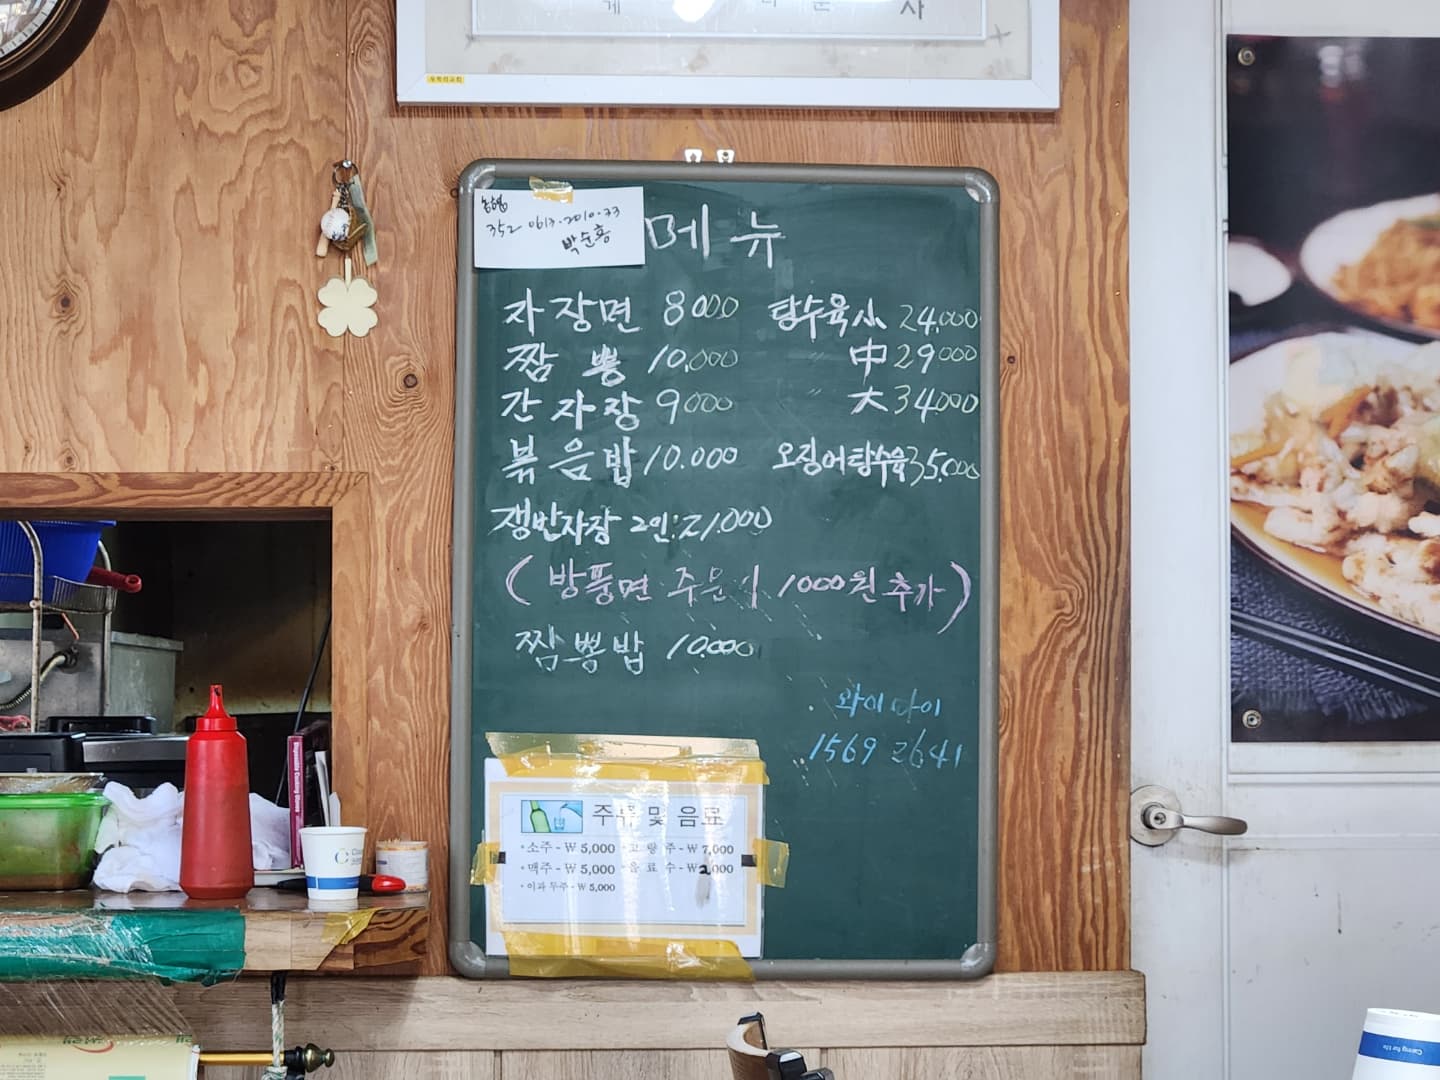 농협
352 0613-2010-33
박순홍
메뉴
자장면 8000 탕수육小 24,000
짬뽕 10,000 〃 中 29000
간자장 9000 〃 大 34000
볶음밥 10.000 오징어탕수육 35,000
쟁반자장 2인:21,000
(방풍면 주문시 1000원 추가)
짬뽕밥 10,000
와이마이
1569 2641
주류 및 음료
·소주-₩5,000 ·고량주-₩7,000
·맥주-₩5,000 ·음료수-₩2,000
·이과두주-₩5,000